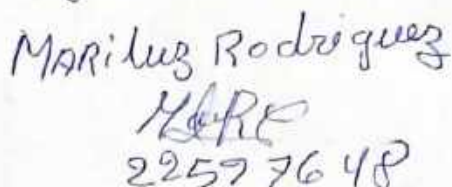 MARiluz Rodriguez
22597648